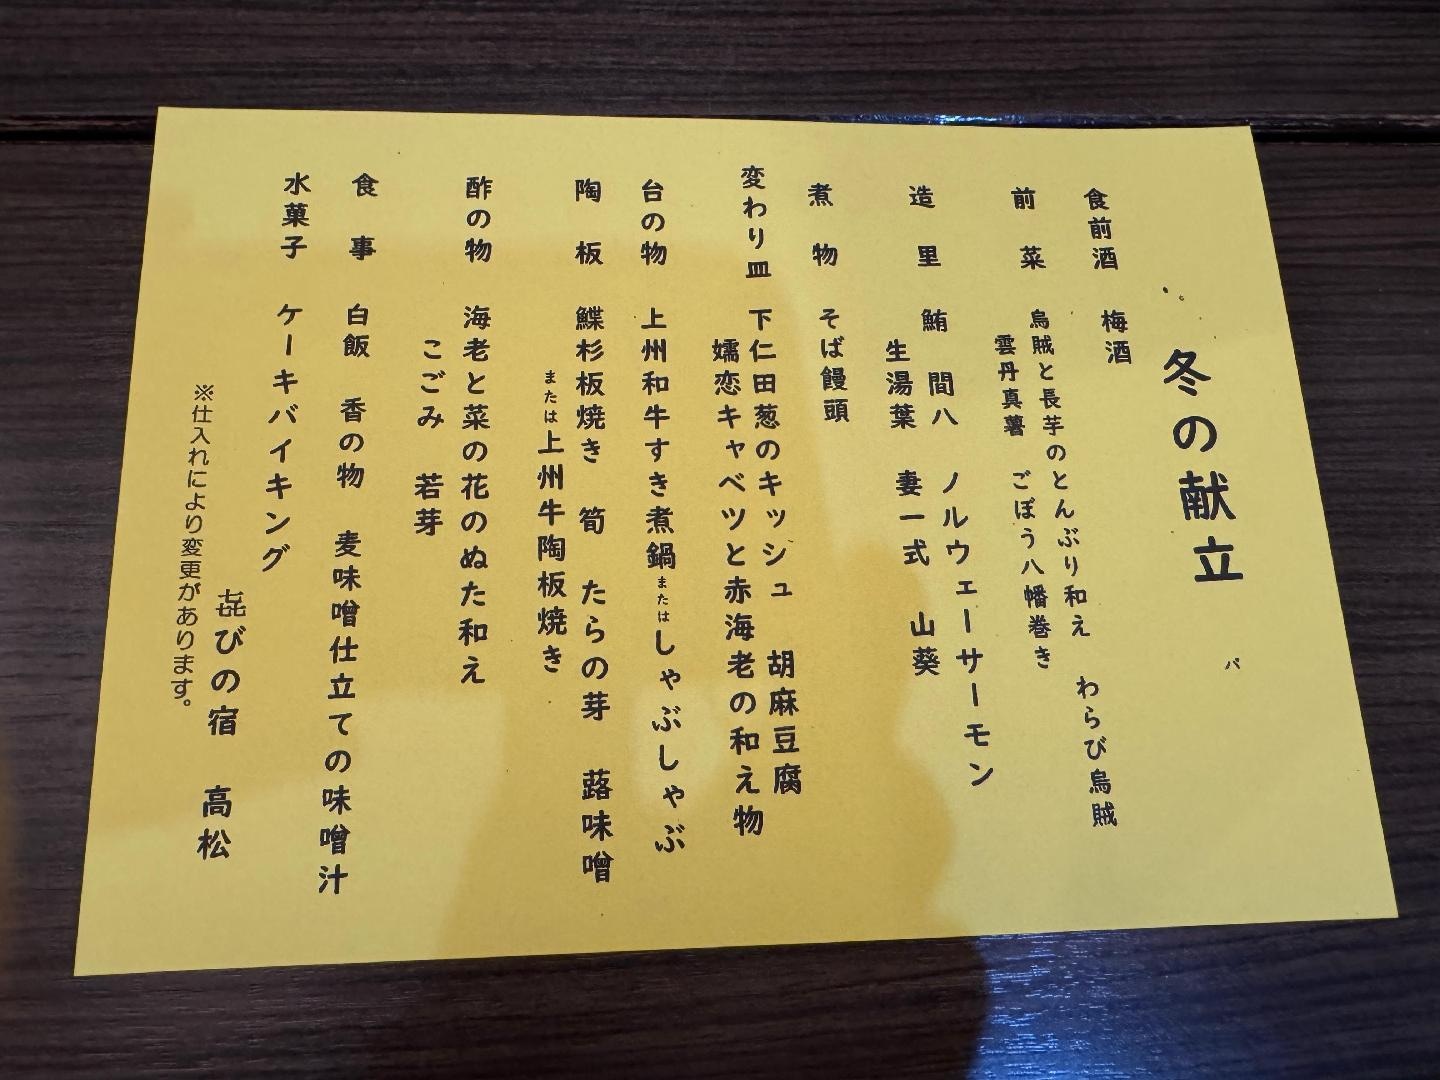 冬の献立 パ
食前酒 梅酒
前菜 烏賊と長芋のとんぶり和え わらび烏賊
雲丹真薯 ごぼう八幡巻き
造里 鮪 間八 ノルウェーサーモン
生湯葉 妻一式 山葵
煮物 そば饅頭
変わり皿 下仁田葱のキッシュ 胡麻豆腐
嬬恋キャベツと赤海老の和え物
台の物 上州和牛すき煮鍋またはしゃぶしゃぶ
陶板 鰈杉板焼き 筍 たらの芽 蕗味噌
または上州牛陶板焼き
酢の物 海老と菜の花のぬた和え
こごみ 若芽
食事 白飯 香の物 麦味噌仕立ての味噌汁
水菓子 ケーキバイキング
㐂びの宿 高松
※仕入れにより変更があります。